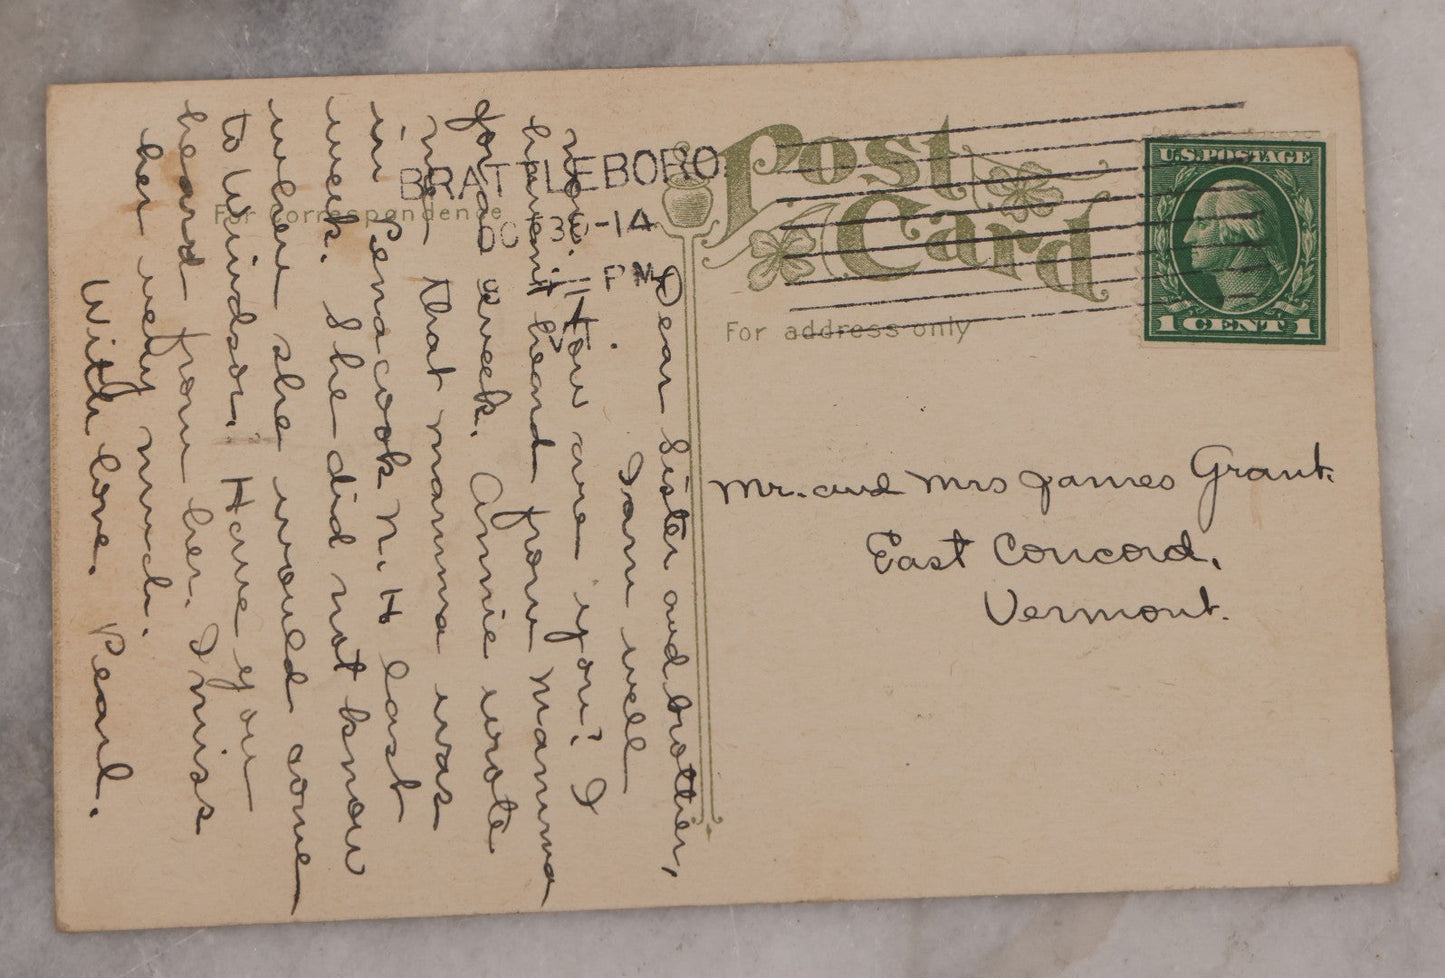 Post
Card
For correspondence
For address only
BRATTLEBORO
PM
U.S. POSTAGE
1 CENT 1
Dear Sister and brother,
I am well
now. How are you? I
haven't heard from Mamma
for a week. Annie wrote
me that mamma was
in Penacook N.H last
week. She did not know
when she would come
to Windsor. Have you
heard from her. I miss
her very much.
With love. Pearl.
Mr. and Mrs James Grant.
East Concord,
Vermont.